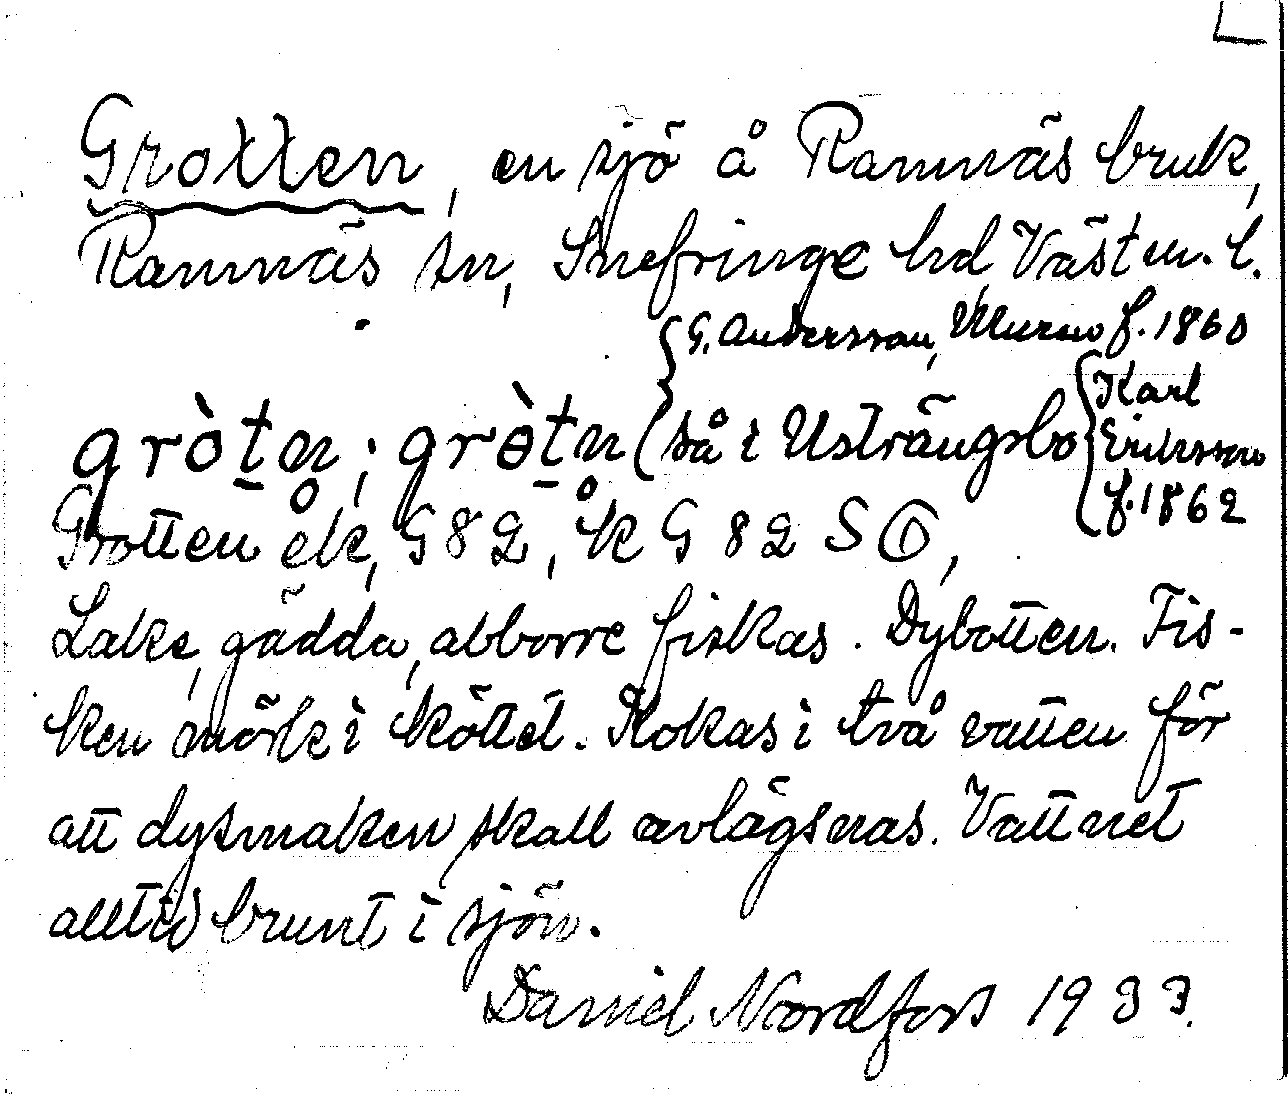 Grotten, en sjö å Ramnäs bruk,
Ramnäs sn, Snefringe hd, Västm. l.
G. Andersson, f. 1860
gròtn; gròtn (så i Usträngsbo Karl
Eriksson
f. 1862
Grotten ek, G 82, åk G 82 SÖ,
Lake, gädda, abborre fiskas. Dybotten. Fis-
ken mörk i köttet. Kokas i två vatten för
att dysmaken skall avlägsnas. Vattnet
alltid brunt i sjön.
Daniel Nordfors 1933.